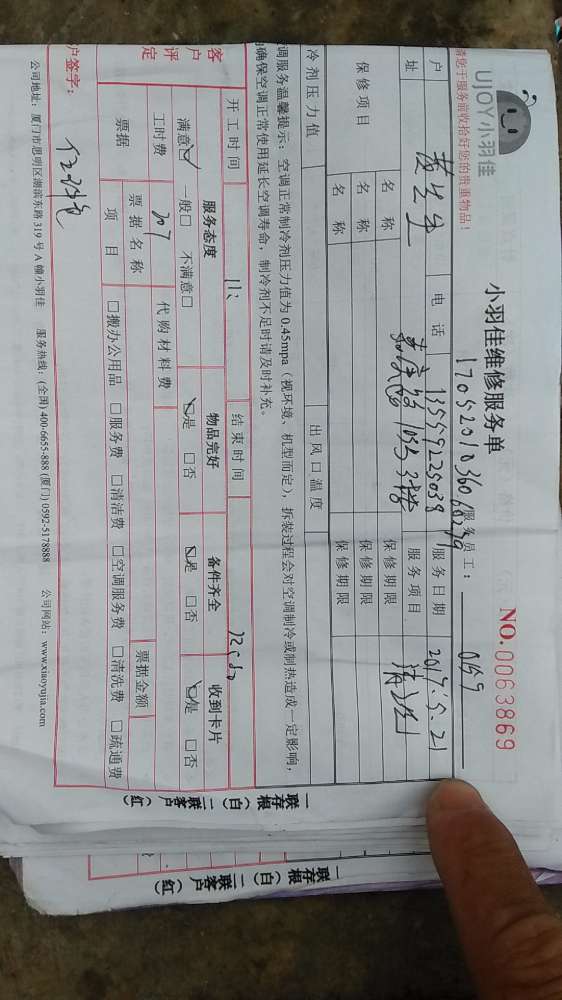 UJOY小羽佳
小羽佳维修服务单
NO.0063869
请您于服务前收拾好您的贵重物品!
服务员工: 0159
户 电话 13559225038 服务日期 2017.5.21
址 服务项目
保修项目 名称 保修期限
名称 保修期限
名称 保修期限
冷剂压力值 出风口温度
调服务温馨提示: 空调正常制冷剂压力值为0.45mpa (视环境、机型而定), 拆装过程会对空调制冷或制热造成一定影响,
确保空调正常使用延长空调寿命, 制冷剂不足时请及时补充。
开工时间 结束时间
客户评定 服务态度 物品完好 备件齐全 收到卡片
满意☑ 一般□ 不满意□ ☑是 □否 ☑是 □否 ☑是 □否
工时费 代购材料费
票据 票据名称 票据金额
项目 □搬办公用品 □服务费 □清洁费 □空调服务费 □清洗费 □疏通费
户签字:
公司地址: 厦门市思明区湖滨东路319号A幢小羽佳 服务热线: (全国) 400-6655-888 (厦门) 0592-5178888 公司网站: www.xiaoyujia.com
一联存根(白) 二联客户(红)
一联存根(白) 二联客户(红)